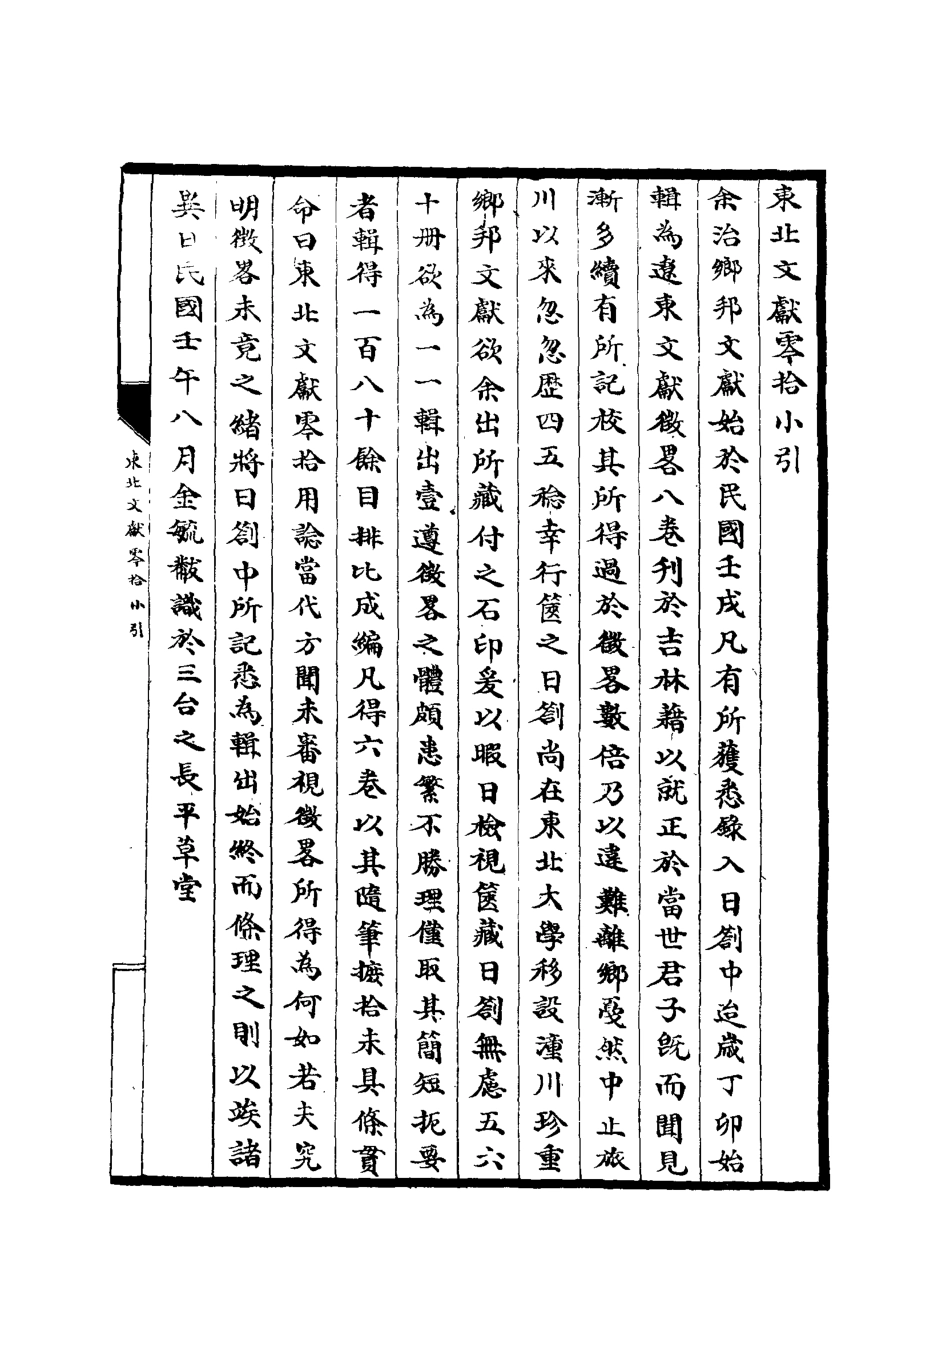 東北文獻零拾小引
余治鄉邦文獻始於民國壬戌凡有所獲悉錄入日劄中迨歲丁卯始
輯為遼東文獻徵畧八卷刊於吉林藉以就正於當世君子旣而聞見
漸多續有所記校其所得過於徵畧數倍乃以遘難離鄉戞然中止旅
川以來忽忽歷四五稔幸行篋之日劄尚在東北大學移設潼川珍重
鄉邦文獻欲余出所藏付之石印爰以暇日檢視篋藏日劄無慮五六
十冊欲為一一輯出壹遵徵畧之體頗恚繁不勝理僅取其簡短扼要
者輯得一百八十餘目排比成編凡得六卷以其隨筆摭拾未具條貫
命曰東北文獻零拾用諗當代方聞未審視徵畧所得為何如若夫究
明徵畧未竟之緒將日劄中所記悉為輯出始終而條理之則以竢諸
異日民國壬午八月金毓黻識於三台之長平草堂
東北文獻零拾小引